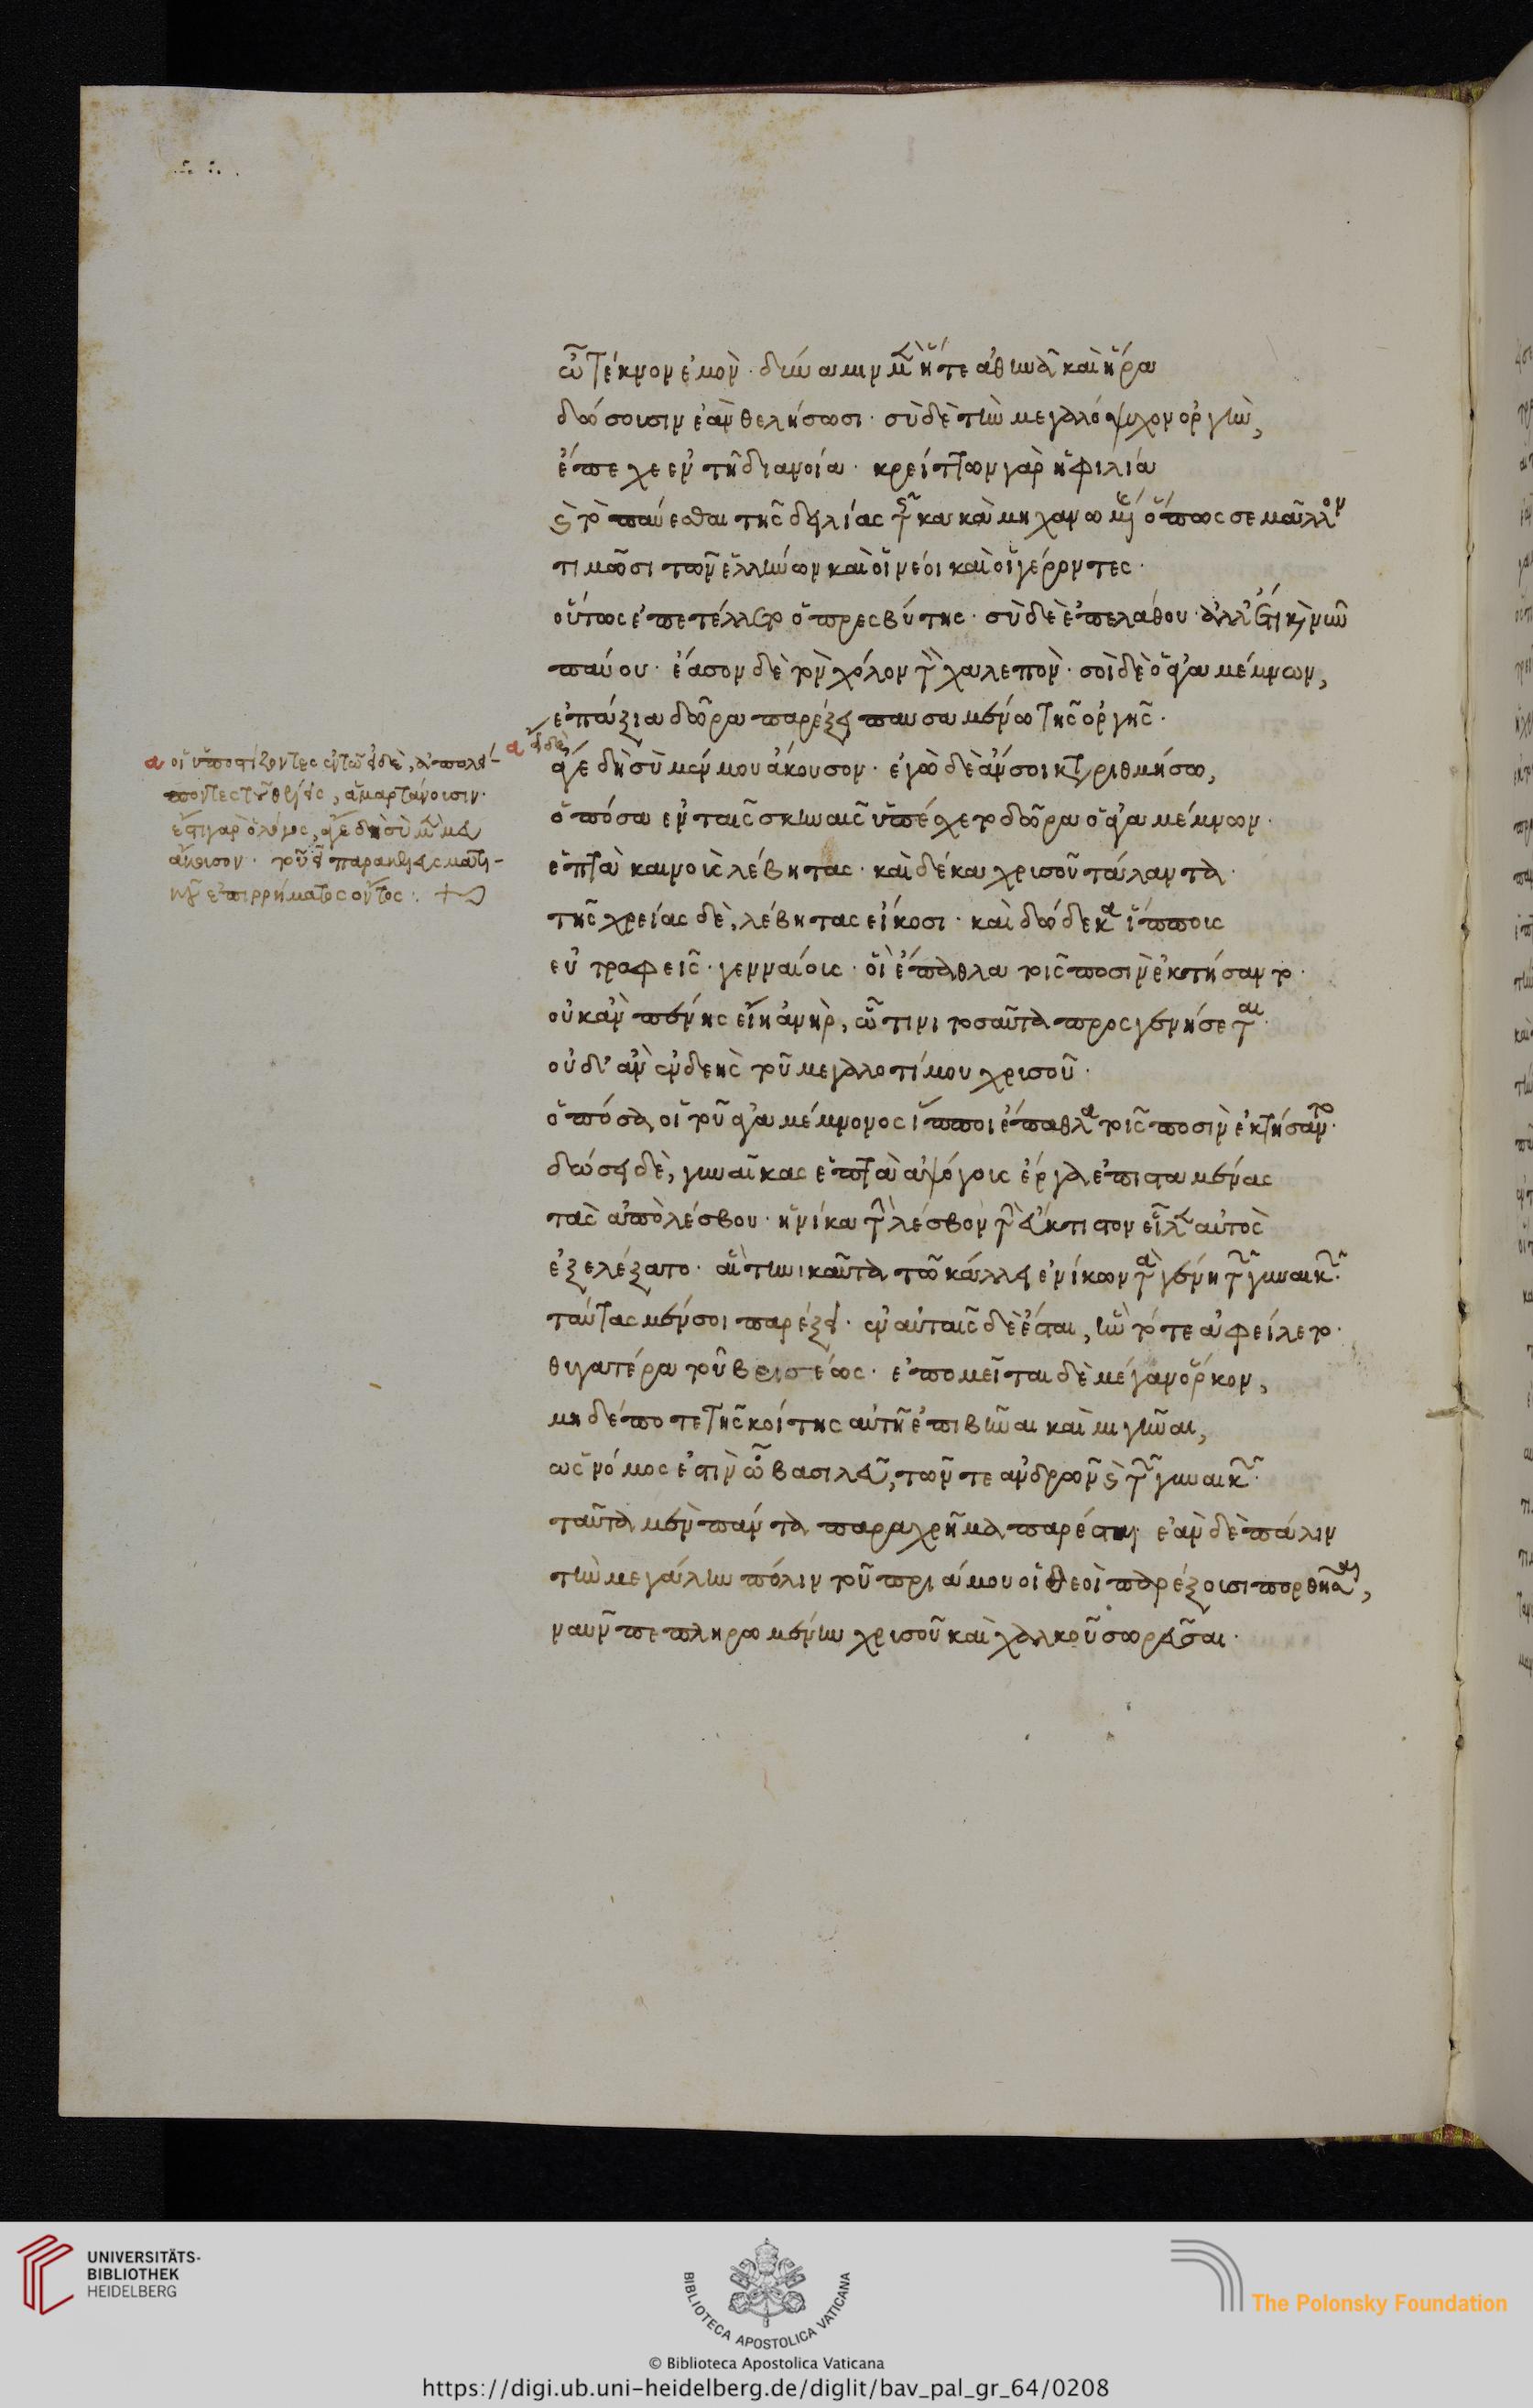 ὦ τέκνον ἐμὸν· δύναμιν μὲν ἥτε ἀθηνᾶ καὶ ἥρα
δώσουσιν ἐὰν θελήσωσι· σὺ δὲ τὴν μεγαλόψυχον ὀργὴν,
ἔπεχε ἐν τῆ διανοία· κρείττων γὰρ ἡ φιλία
καὶ τὸ παύεσθαι τῆς τῆς κακὰ μηχανω ὅπως σε μᾶλλον
τιμῶσι τῶν ἑλλήνων καὶ οἱ νέοι καὶ οἱ γέροντες·
οὕτως ἐπετέλλετο ὁ πρεσβύτης· σὺ δὲ ἐπελάθου· ἀλλ' ἔτι καὶ νῦν
παύου· ἔασον δὲ τὸν χόλον τὸν χαλεπὸν· σοὶ δὲ ὁ ἀγαμέμνων,
ἐπάξια δῶρα παρέξει παυσαμένω τῆς ὀργῆς·
εἰ δὲ
ἄγε δὴ σὺ μέν μου ἄκουσον· ἐγὼ δὲ ἄν σοι καταριθμήσω,
ὁπόσα ἐν ταῖς σκηναῖς ὑπέσχετο δῶρα ὁ ἀγαμέμνων·
ἑπτὰ καινοὺς λέβητας· καὶ δέκα χρυσοῦ τάλαντα·
τῆς χρείας δὲ, λέβητας εἴκοσι· καὶ δώδεκα ἵππους
εὐτραφεῖς· γενναίους· οἳ ἔπαθλα τοῖς ποσὶν ἐκτήσαντο·
οὐκ ἂν πένης εἴη ἀνὴρ, ὧτινι τοσαῦτα προσγενήσεται·
οὐδ' ἂν ἐνδεὴς τοῦ μεγαλοτίμου χρυσοῦ·
ὁπόσα οἱ τοῦ ἀγαμέμνονος ἵπποι ἔπαθλα τοῖς ποσὶν ἐκτήσαντο·
δώσει δὲ, γυναῖκας ἑπτὰ ἀψόγους ἔργα ἐπισταμένας
τὰς ἀπὸ λέσβου· ἡνίκα τὴν λέσβον τὴν εὔκτιστον εἷλεν αὐτὸς
ἐξελέξατο· αἳ τηνικαῦτα τῶ κάλλει ἐνίκων τὰ γένη τῶν γυναικῶν·
ταύτας μέν σοι παρέξει· ἐν αὐταῖς δὲ ἔσται, ἣν τότε ἀφείλετο·
θυγατέρα τοῦ βρισέως· ἐπομεῖται δὲ μέγαν ὅρκον,
μηδέποτε τῆς κοίτης αὐτῆ ἐπιβῆναι καὶ μιγῆναι,
ὡς νόμος ἐστὶν ὦ βασιλεῦ, τῶν τε ἀνδρῶν καὶ τῶν γυναικῶν·
ταῦτα μὲν πάντα παραχρῆμα παρέσται· ἐὰν δὲ πάλιν
τὴν μεγάλην πόλιν τοῦ πριάμου οἱ θεοὶ παρέξουσι πορθῆσαι,
ναῦν πεπληρωμένην χρυσοῦ καὶ χαλκοῦ σωρεῦσαι·
α οἱ ὑποστίζοντες ἐν τῶ εἰ δὲ, ἀπολεί-
ποντες τὸ θέλεις, ἁμαρτάνουσιν·
ἔστι γὰρ ὁ λόγος, ἄγε δὴ σὺ μέν μευ
ἄκουσον· τοῦ εἰ παρακελευσματι-
κοῦ ἐπιρρήματος ὄντος:
UNIVERSITÄTS-
BIBLIOTHEK
HEIDELBERG
BIBLIOTECA APOSTOLICA VATICANA
The Polonsky Foundation
© Biblioteca Apostolica Vaticana
https://digi.ub.uni-heidelberg.de/diglit/bav_pal_gr_64/0208